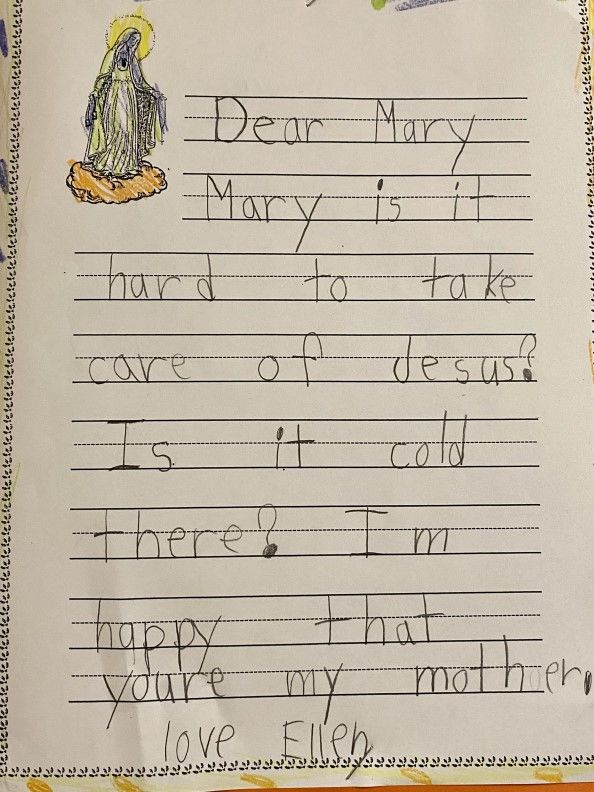 Dear Mary
Mary is it
hard to take
care of Jesus?
Is it cold
there? Im
happy that
youre my mother.
love Ellen